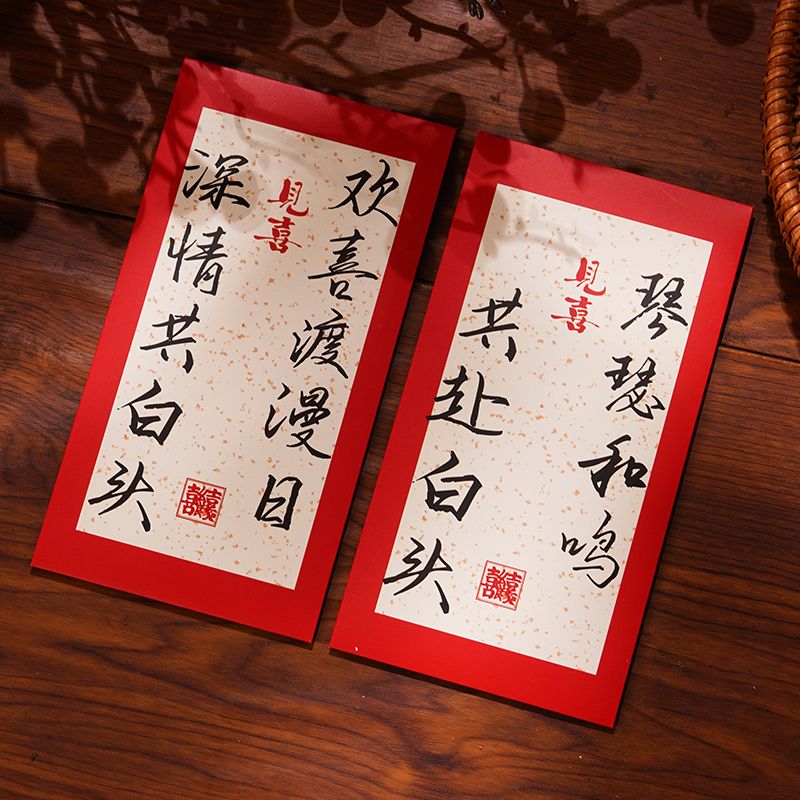 欢喜渡漫日
见喜
深情共白头
琴瑟和鸣
见喜
共赴白头